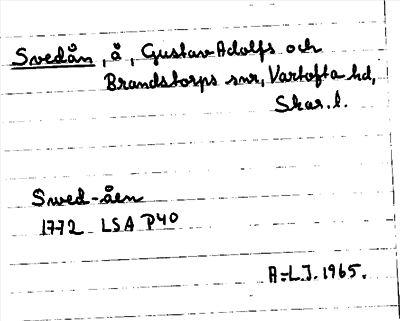 Svedån, å, Gustav Adolfs och
Brandstorps snr, Vartofta hd,
Skar. l.
Swed-åen
1772 LSA P40
A-L.J. 1965.